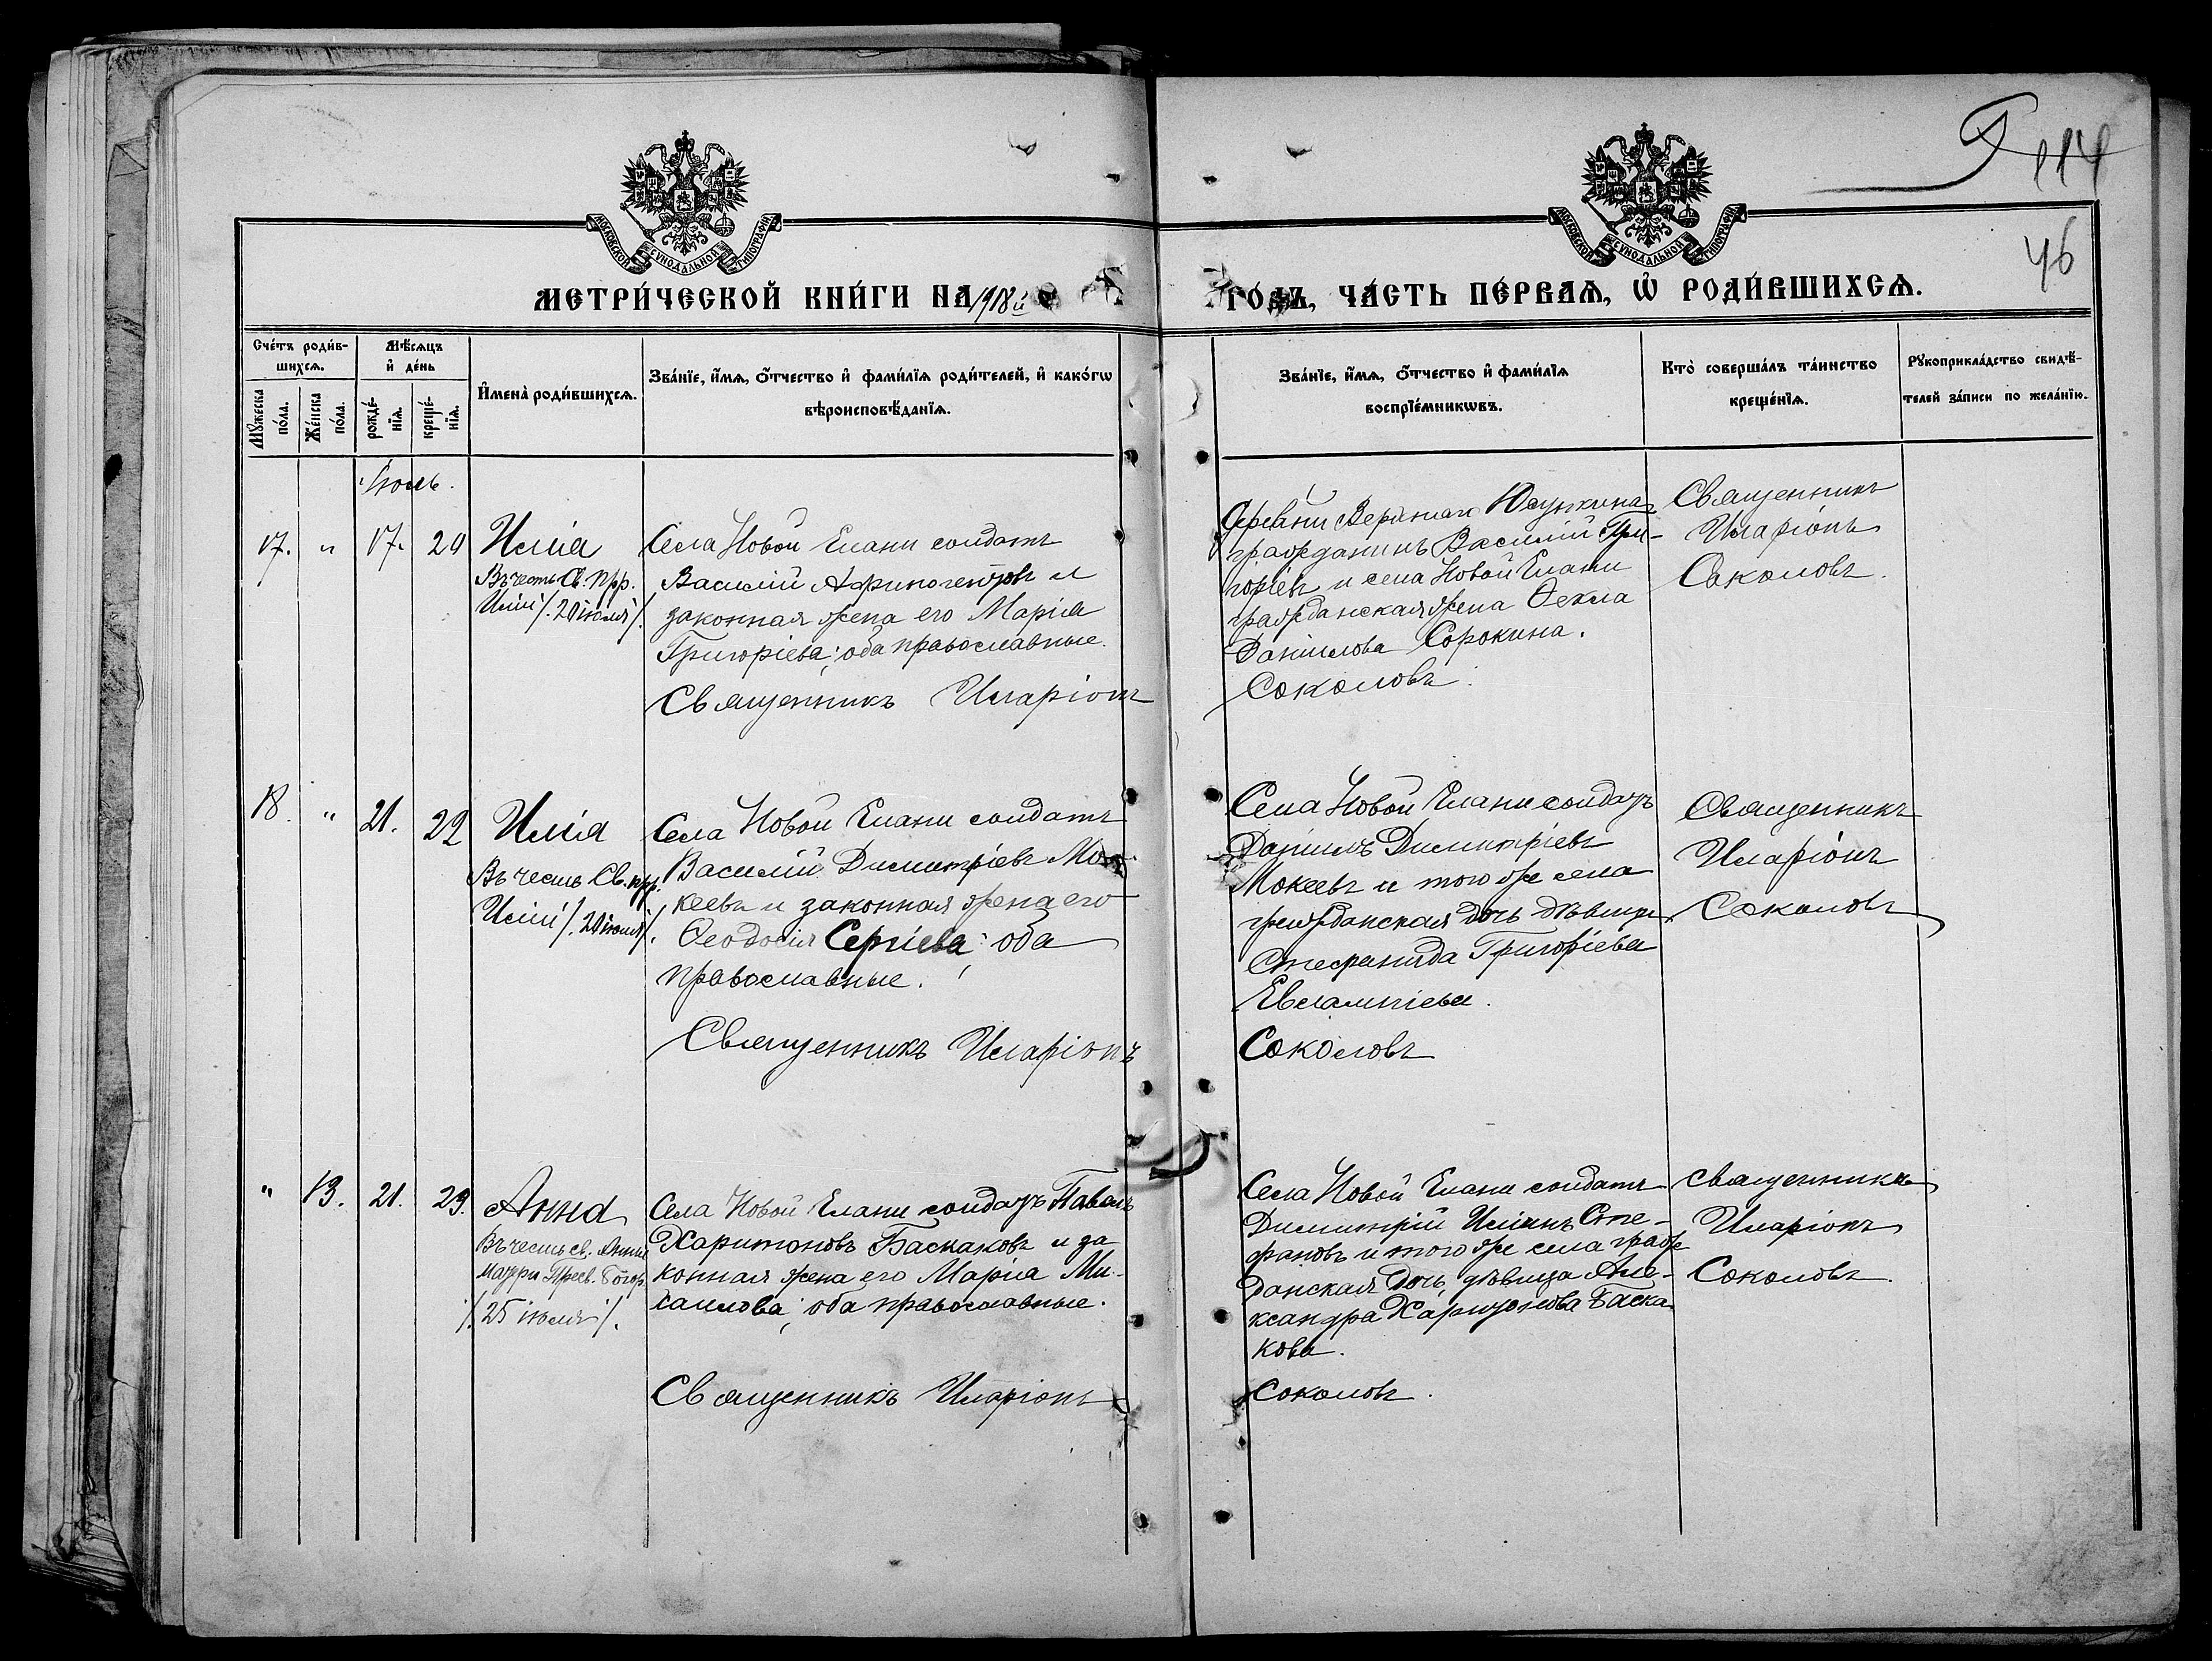 114
46
МОСКОВСКОЙ СѴНОДАЛЬНОЙ ТИПОГРАФІИ
МОСКОВСКОЙ СѴНОДАЛЬНОЙ ТИПОГРАФІИ
МЕТРИ́ЧЕСКОЙ КНИ́ГИ НА 1918й
ГО́ДЪ, ЧА́СТЬ ПЕ́РВАЯ, Ѡ҆ РОДИ́ВШИХСЯ.
Сче́тъ роди́в-
шихсѧ.
Мꙋжеска по́ла.
Же́нска по́ла.
Мѣ́сѧцъ
и҆ де́нь
рожде́-
нїѧ.
креще́-
нїѧ.
И҆мена̀ роди́вшихсѧ.
Зва́нїе, и҆́мѧ, ѻ҆́тчество и҆ фами́лїѧ роди́телей, и҆ како́гѡ
вѣроисповѣ́данїѧ.
Зва́нїе, и҆́мѧ, ѻ҆́тчество и҆ фами́лїѧ
воспрїе́мникѡвъ.
Кто̀ соверша́лъ та́инство
креще́нїѧ.
Рꙋкоприкла́дство свидѣ́-
телей за́писи по жела́нїю.
Іюль.
17. " 17. 20 Илія
Въ честь Св. Прр.
Иліи /. 20 іюля /.
Села Новой Елани солдатъ
Василій Афиногеновъ и
законная жена его Марія
Григоріева; оба православные.
Священникъ Иларіонъ
Деревни Верхняго
гражданинъ Василій Гри-
горіевъ и села Новой Елани
гражданская жена Ѳекла
Даниилова Сорокина.
Соколовъ.
Священникъ
Иларіонъ
Соколовъ.
18. " 21. 22 Илія
Въ честь Св. прр.
Иліи /. 20 іюля /.
Села Новой Елани солдатъ
Василій Димитріевъ Мо-
кеевъ и законная жена его
Ѳеодосія Сергіева; оба
православные.
Священникъ Иларіонъ
Села Новой Елани солдатъ
Даніилъ Димитріевъ
Мокеевъ и того же села
гражданская дочь дѣвица
Стефанида Григоріева
Евлампіева.
Соколовъ
Священникъ
Иларіонъ
Соколовъ
" 13. 21. 23. Анна
Въ честь св. Анны
матри Пресв. Богор.
/. 25 іюля /.
Села Новой Елани солдатъ Павелъ
Харитоновъ Баскаковъ и за
конная жена его Марія Ми-
хаилова; оба православные.
Священникъ Иларіонъ
Села Новой Елани солдатъ
Димитрій Иліинъ Сте-
фановъ и того же села граж
данская дочь, дѣвица Але-
ксандра Харитонова Баска
кова.
Соколовъ.
Священникъ
Иларіонъ
Соколовъ.